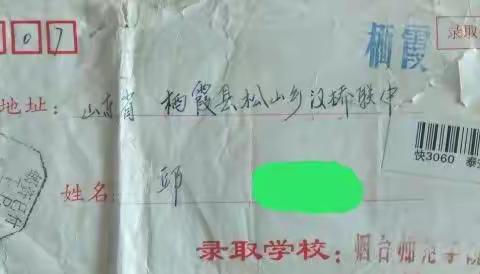 07 栖霞 录取
地址: 山东省 栖霞县松山乡汉桥联中
快3060 泰安
姓名: 郭
录取学校: 烟台师范学院